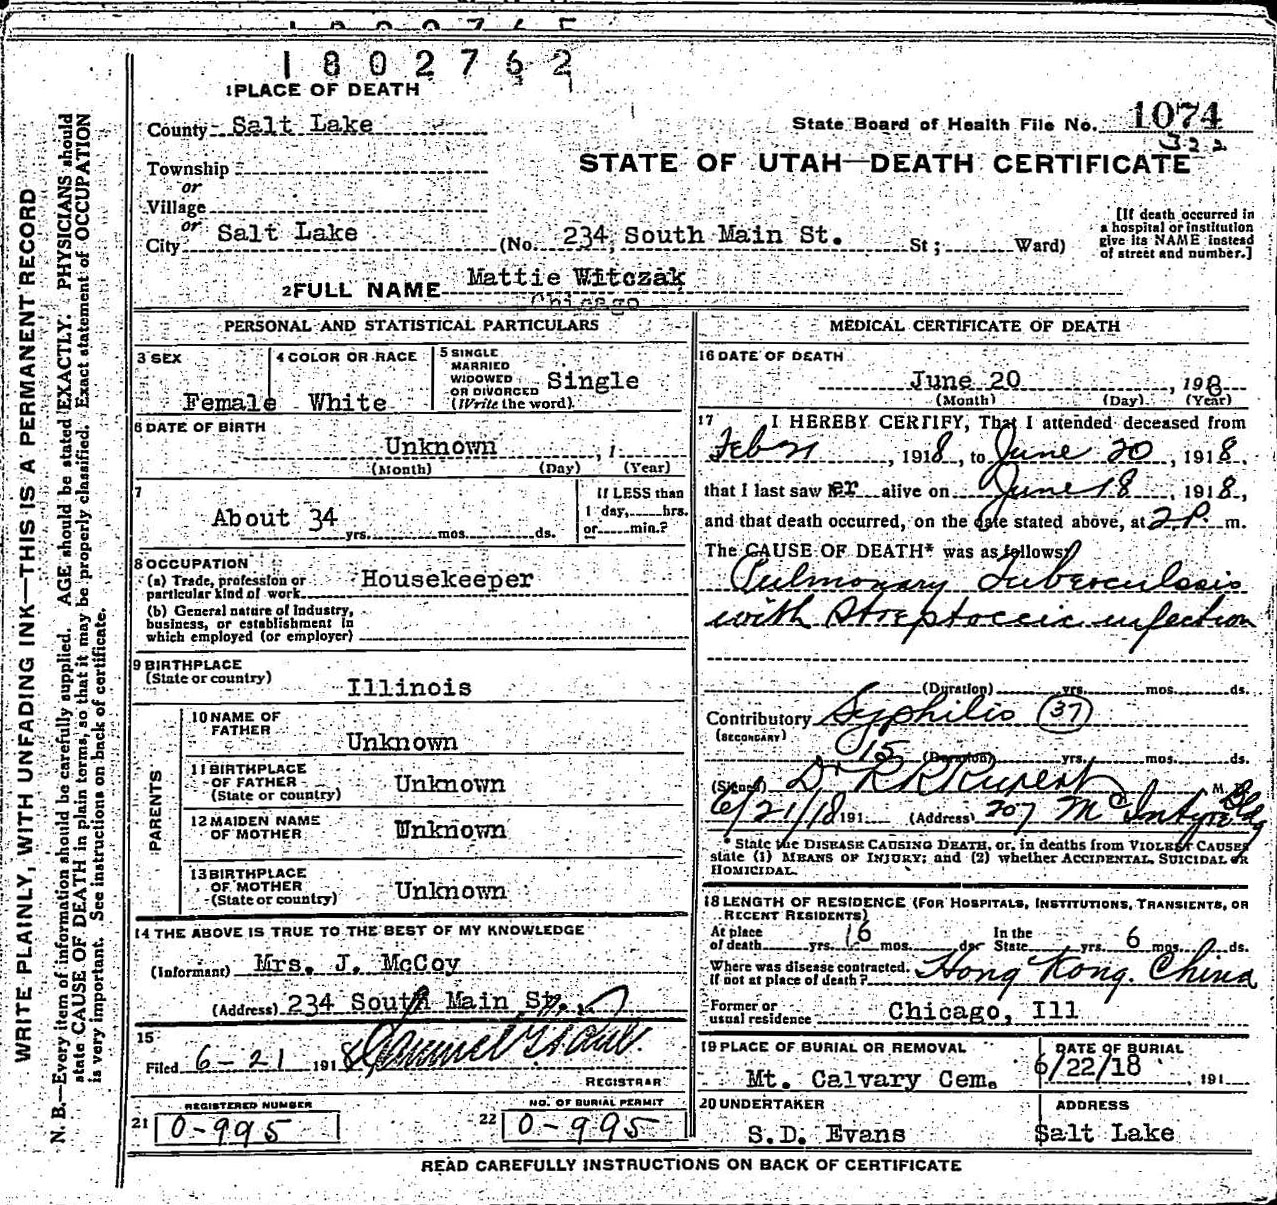 1802762
1 PLACE OF DEATH
County Salt Lake
State Board of Health File No. 1074
322
STATE OF UTAH—DEATH CERTIFICATE
Township
or
Village
or
City Salt Lake (No. 234 South Main St. St; Ward)
[If death occurred in
a hospital or institution
give its NAME instead
of street and number.]
2 FULL NAME Mattie Witczak
Chicago
PERSONAL AND STATISTICAL PARTICULARS
3 SEX
Female
4 COLOR OR RACE
White
5 SINGLE
MARRIED
WIDOWED
OR DIVORCED
(Write the word)
Single
6 DATE OF BIRTH
Unknown , 1
(Month) (Day) (Year)
7
About 34 yrs. mos. ds.
If LESS than
1 day, hrs.
or min.?
8 OCCUPATION
(a) Trade, profession or
particular kind of work Housekeeper
(b) General nature of Industry,
business, or establishment in
which employed (or employer)
9 BIRTHPLACE
(State or country)
Illinois
PARENTS
10 NAME OF
FATHER
Unknown
11 BIRTHPLACE
OF FATHER
(State or country)
Unknown
12 MAIDEN NAME
OF MOTHER
Unknown
13 BIRTHPLACE
OF MOTHER
(State or country)
Unknown
14 THE ABOVE IS TRUE TO THE BEST OF MY KNOWLEDGE
(Informant) Mrs. J. McCoy
(Address) 234 South Main St.,
15
Filed 6-21 1918
REGISTRAR
REGISTERED NUMBER
21 0-995
NO. OF BURIAL PERMIT
22 0-995
MEDICAL CERTIFICATE OF DEATH
16 DATE OF DEATH
June 20 , 1918
(Month) (Day) (Year)
17 I HEREBY CERTIFY, That I attended deceased from
Feb 21 , 1918, to June 20 , 1918,
that I last saw her alive on June 18 , 1918,
and that death occurred, on the date stated above, at 2 P. m.
The CAUSE OF DEATH* was as follows:
Pulmonary Tuberculosis
with Streptoccic infection
(Duration) yrs. mos. ds.
Contributory Syphilis (37)
(SECONDARY)
15 (Duration) yrs. mos. ds.
(Signed) Dr R R Rupert M. D.
6/21/18 191 (Address) 207 McIntyre Bldg
* State the DISEASE CAUSING DEATH, or, in deaths from VIOLENT CAUSES
state (1) MEANS OF INJURY; and (2) whether ACCIDENTAL, SUICIDAL or
HOMICIDAL.
18 LENGTH OF RESIDENCE (FOR HOSPITALS, INSTITUTIONS, TRANSIENTS, OR
RECENT RESIDENTS)
At place
of death yrs. 6 mos. ds.
In the
State yrs. 6 mos. ds.
Where was disease contracted,
if not at place of death? Hong Kong. China
Former or
usual residence Chicago, Ill
19 PLACE OF BURIAL OR REMOVAL
Mt. Calvary Cem.
DATE OF BURIAL
6/22/18 , 191
20 UNDERTAKER
S.D. Evans
ADDRESS
Salt Lake
READ CAREFULLY INSTRUCTIONS ON BACK OF CERTIFICATE
WRITE PLAINLY, WITH UNFADING INK—THIS IS A PERMANENT RECORD
N. B.—Every item of information should be carefully supplied. AGE should be stated EXACTLY. PHYSICIANS should
state CAUSE OF DEATH in plain terms, so that it may be properly classified. Exact statement of OCCUPATION
is very important. See instructions on back of certificate.